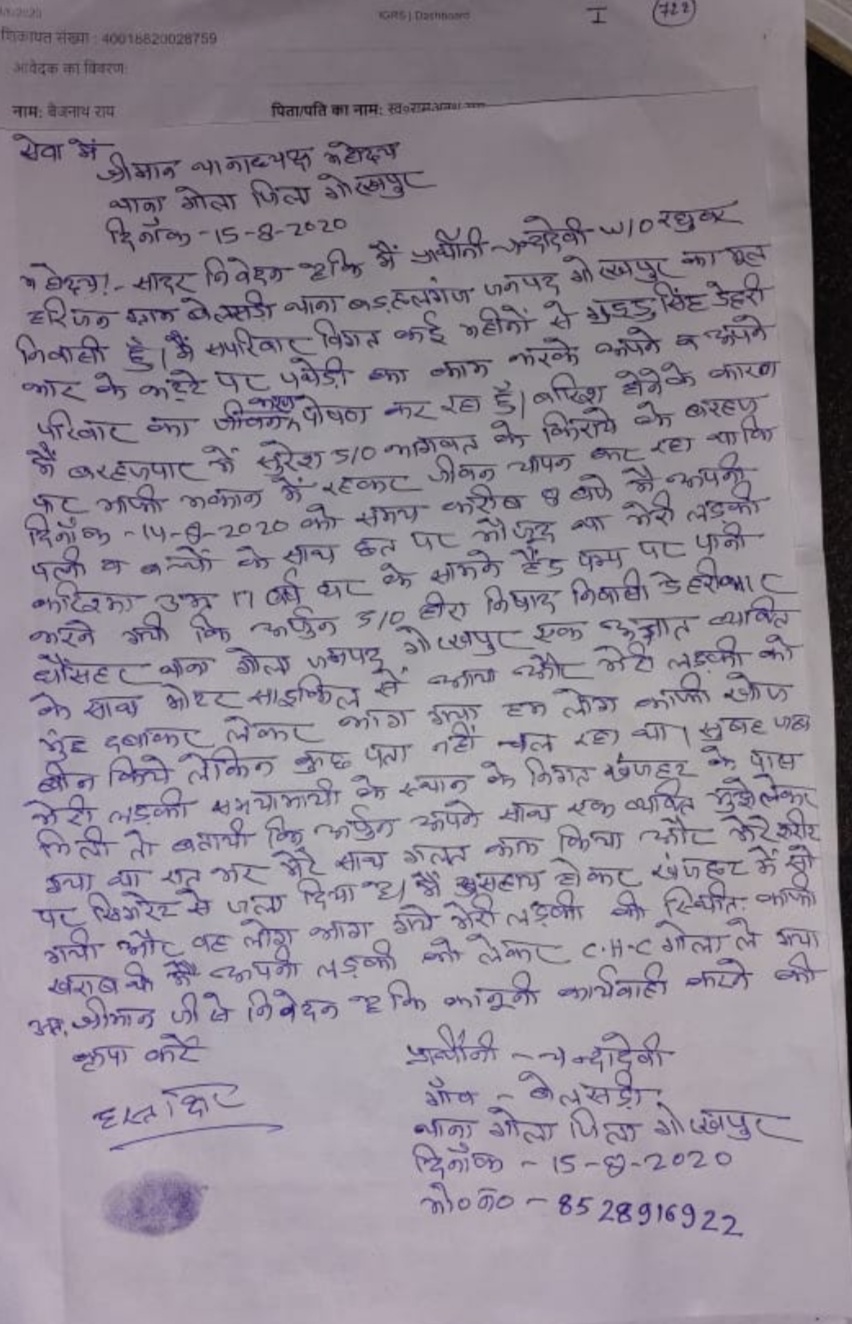 /8/2020 IGRS | Dashboard I (722)
शिकायत संख्या : 40018820028759
आवेदक का विवरण:
नाम: बैजनाथ राय पिता/पति का नाम: स्व०
सेवा में
श्रीमान थानाध्यक्ष महोदय
थाना गोला जिला गोरखपुर
दिनाँक -15-8-2020
महोदय!- सादर निवेदन है कि मैं प्रार्थीनी चन्दादेवी W/O रघुवर
हरिजन ग्राम बेलसड़ी थाना बड़हलगंज जनपद गोरखपुर का मूल
निवासी हूँ। मैं सपरिवार विगत कई महीनों से गुड्डू सिंह डेहरी
भार के भट्टे पर पथेड़ी का काम करके अपने व अपने
परिवार का जीवन पोषण कर रहा हूँ। बारिश होने के कारण
मैं बरहजपार में सुरेश S/O भागवत के किराये के
काफी मकान में रहकर जीवन यापन कर रहा था कि
दिनाँक -14-8-2020 को समय करीब 8 बजे मै अपनी
पत्नी व बच्चों के साथ छत पर मौजूद था मेरी लड़की
करिश्मा उम्र 17 वर्ष घर के सामने हैंड पम्प पर पानी
भरने गयी कि अर्जुन S/O हीरा निषाद निवासी डेहरीभार
थाना गोला जनपद गोरखपुर एक अज्ञात व्यक्ति
के साथ मोटर साइकिल से आया और मेरी लड़की को
मुँह दबाकर लेकर भाग गया हम लोग काफी खोज
बीन किये लेकिन कुछ पता नहीं चल रहा था। सुबह
मेरी लड़की के स्थान के खंडहर के पास
मिली तो बतायी कि अर्जुन अपने साथ एक व्यक्ति मुझे लेकर
गया था रात भर मेरे साथ गलत काम किया और मेरे शरीर
पर सिगरेट से जला दिया है। मैं होकर खंडहर में सो
गयी और वह लोग भाग गये मेरी लड़की की स्थिति काफी
खराब थी मैं अपनी लड़की को लेकर C.H.C गोला ले गया
अतः श्रीमान जी से निवेदन है कि कानूनी कार्यवाही करने की
कृपा करें
प्रार्थीनी - चन्दादेवी
गाँव - बेलसड़ी
हस्ताक्षर
थाना गोला जिला गोरखपुर
दिनाँक - 15-8-2020
मो०नं० - 8528916922